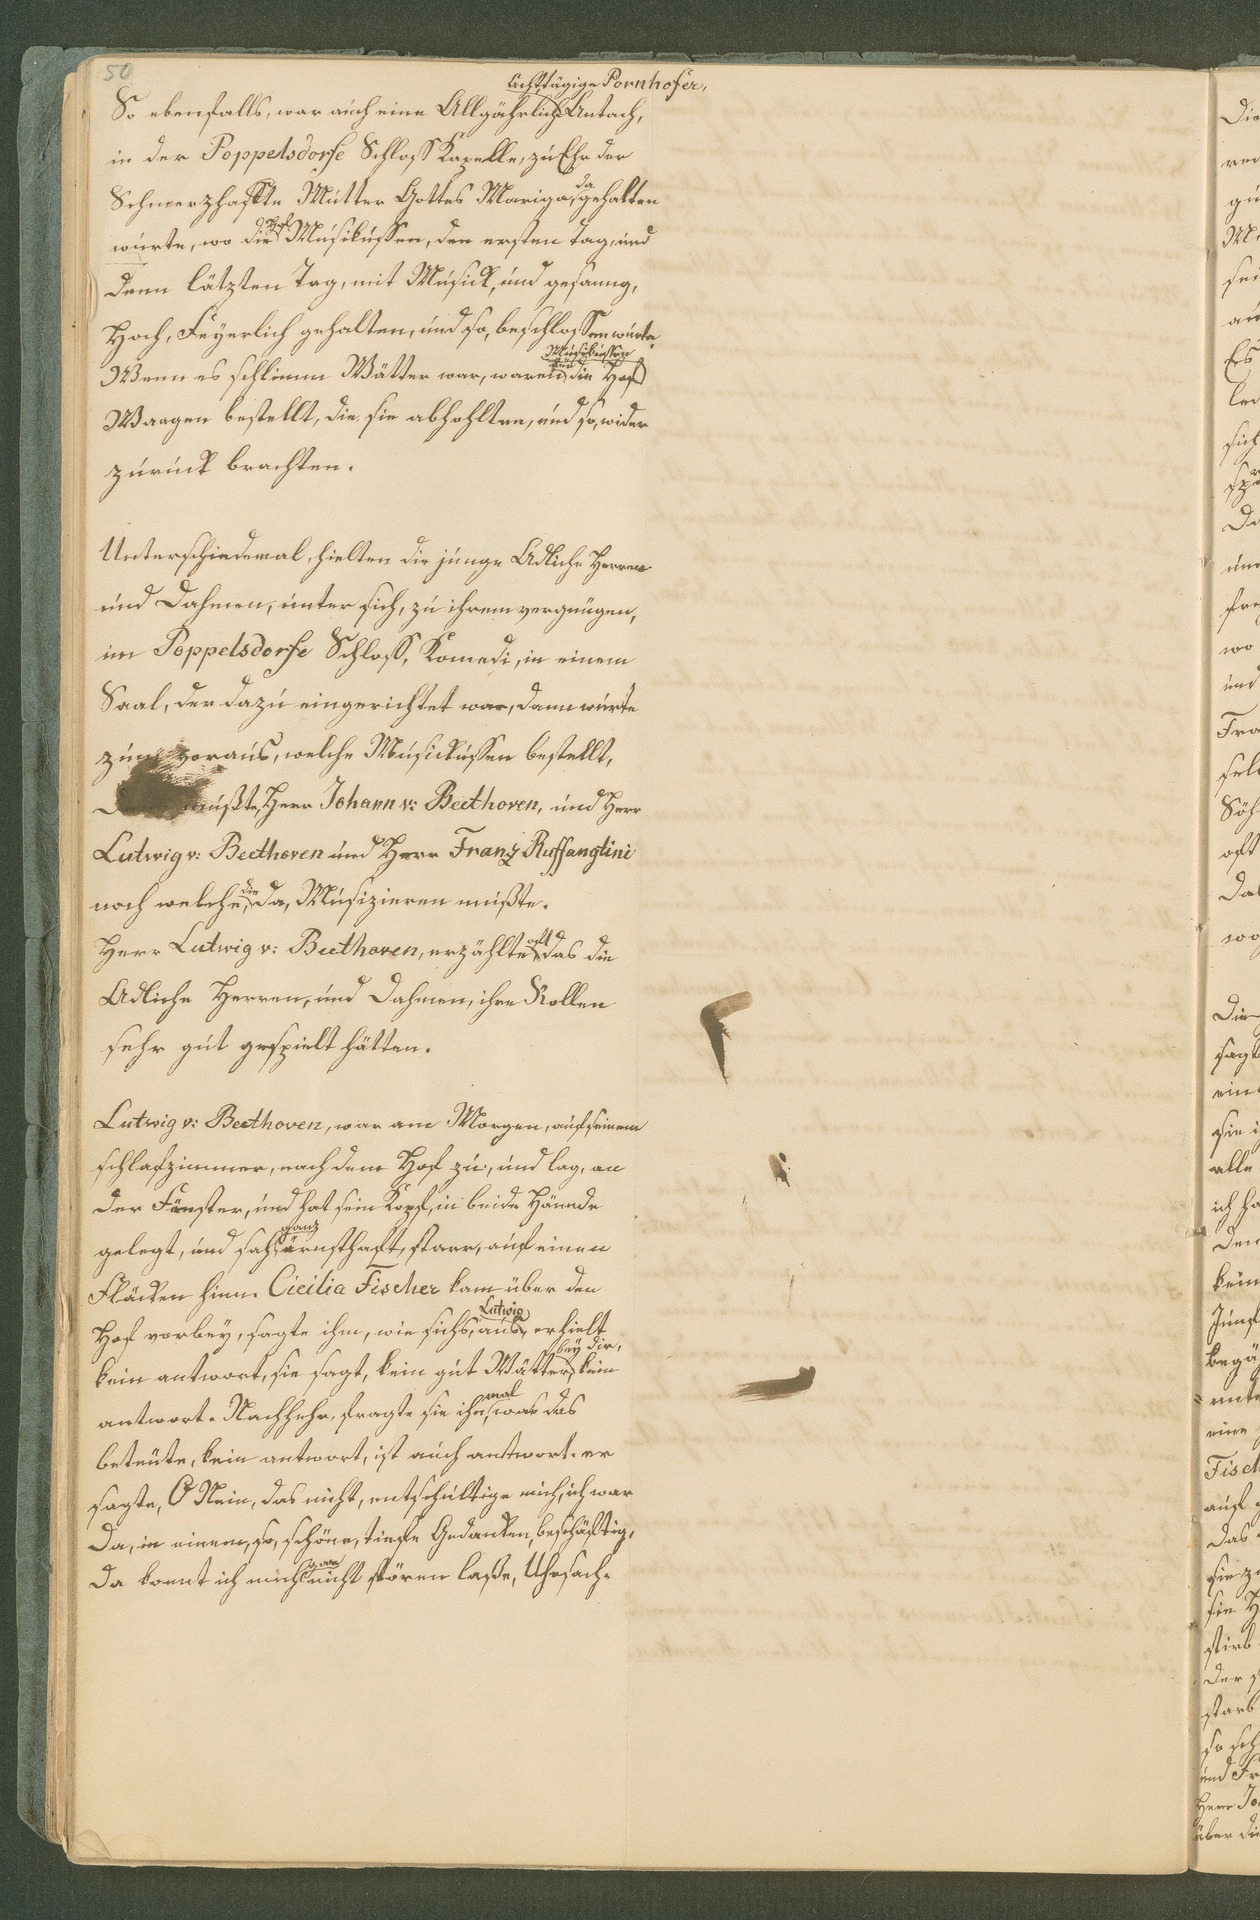 50
Achttägige Pornhofer,
So ebenfalls, war auch eine Allgährlich Antach,
in der Poppelsdorfe Schloss Kapelle, zu Ehr der
Schmerzhaffte Mutter Gottes Mariga, da gehalten
wurte, wo die Hof Musikussen, den ersten Tag, und
denn lätzten Tag, mit Musick, und gesanng,
Hoch, Feyerlich gehalten, und so, beschlossen wurte.
Wenn es schlimm Wätter war, waren für Musikussen die Hof
Waagen bestellt, die sie abhohlten, und so, wider
zurück brachten.
Unterschiedemal, hielten die junge Adliche Herren
und Dahmen, unter sich, zu ihrem vergnügen,
im Poppelsdorfe Schloss, Komedi, in einem
Saal, der dazu eingerichtet war, dann wurte
zum voraus, welche Musickussen bestellt,
mußte, Herr Johann v: Beethoven, und Herr
Lutwig v: Beethoven und Herr Franz Ruffangtini
noch welche, die da, Musizieren mußte.
Herr Lutwig v: Beethoven, erzählte oft das die
Adliche Herren, und Dahmen, ihre Rollen
sehr gut gespielt hätten.
Lutwig v: Beethoven, war am Morgen, auf seinem
schlafzimmer, nach dem Hof zu, und lag, an
der Fänster, und hat sein Kopf, in beide Hännde
gelegt, und sah, ganz ärnsthaft, starr, auf einen
Fläcken hinn. Cicilia Fischer kam über den
Hof vorbey, sagte ihm, wie sichs, aus, Lutwig erhielt
kein antwort, sie sagt, kein gut Wätter, bey dir, kein
antwort. Nachhehr, fragte sie ihn, mal was das
beteute, kein antwort, ist auch antwort. er
sagte, O Nein, das nicht, entschultige mich, ich war
da, in einem, so, schöne, tiefe Gedanken, beschäftig,
da konnt ich mich gar nicht stören laße, Uhrsach.